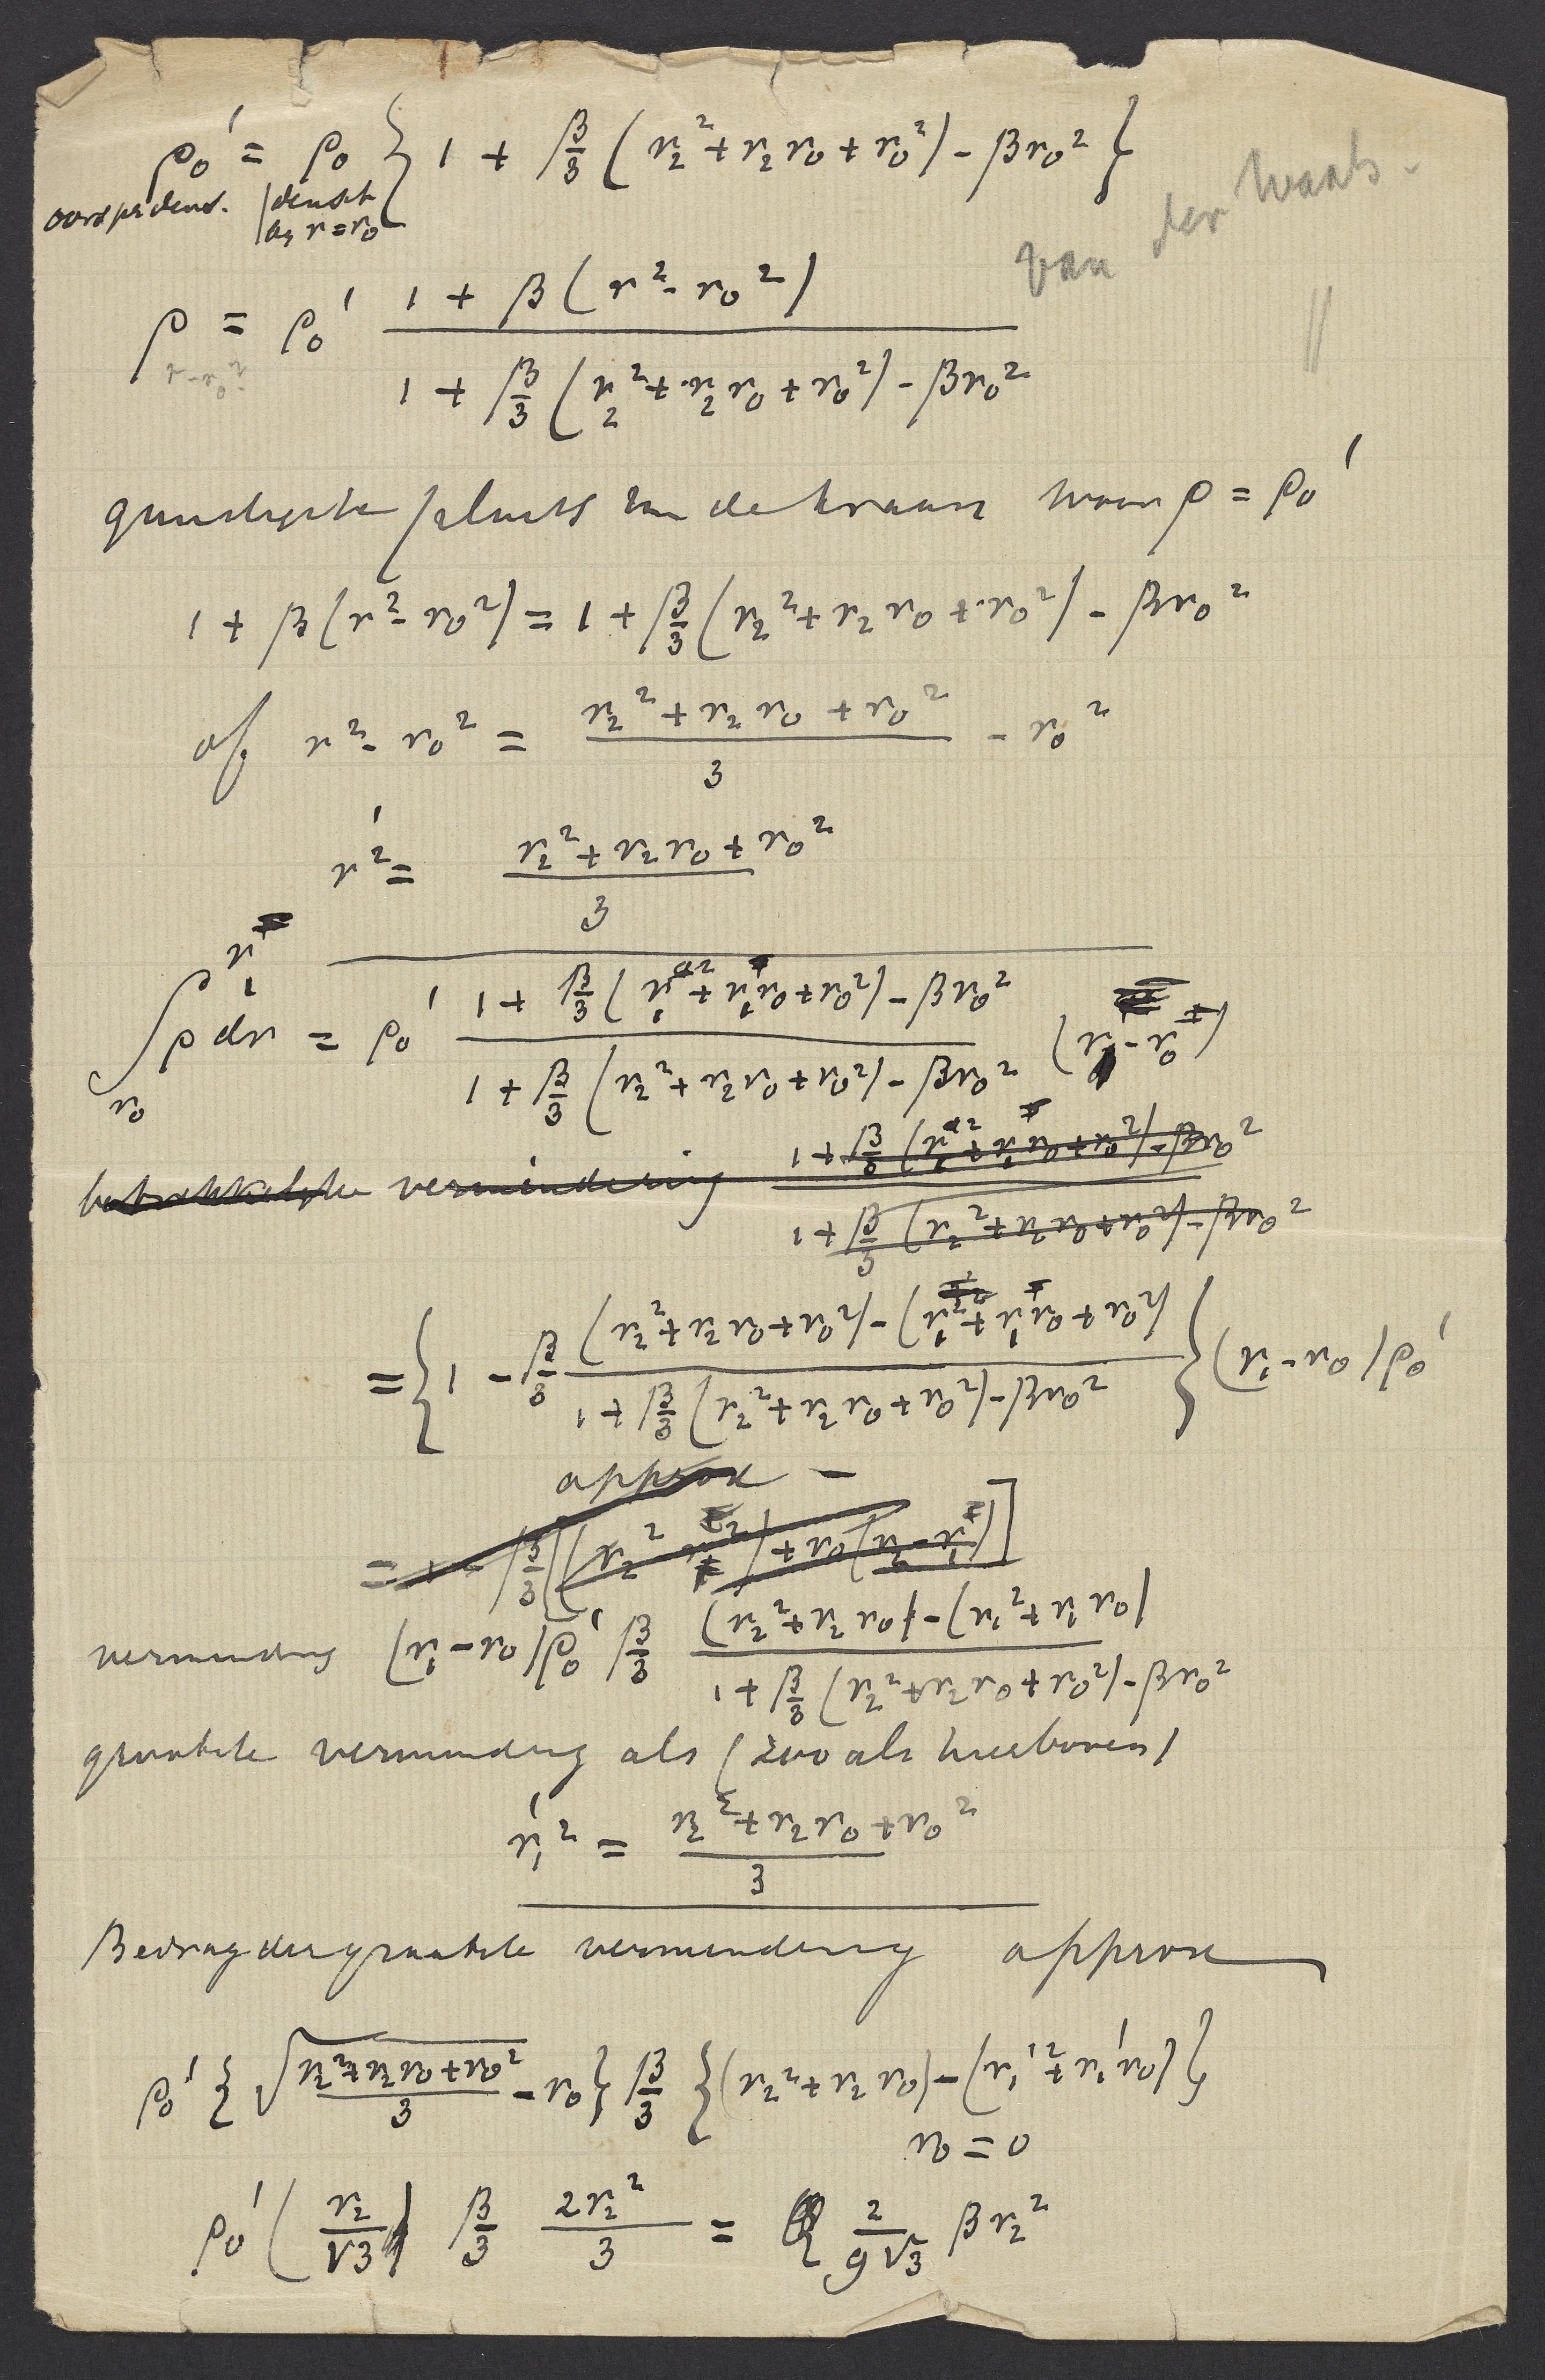 ρ₀' = ρ₀ { 1 + β/3 (r₂² + r₂r₀ + r₀²) - βr₀² }
densit
bij r = r₀
van der Waals.
ρ = ρ₀' (1 + β (r² - r₀²)) / (1 + β/3 (r₂² + r₂r₀ + r₀²) - βr₀²)
r - r₀²
gunstigste plaats van de kraan waar ρ = ρ₀'
1 + β (r² - r₀²) = 1 + β/3 (r₂² + r₂r₀ + r₀²) - βr₀²
of r² - r₀² = (r₂² + r₂r₀ + r₀²) / 3 - r₀²
r'² = (r₂² + r₂r₀ + r₀²) / 3
∫ρdr = ρ₀' (1 + β/3 (r₁² + r₁r₀ + r₀²) - βr₀²) / (1 + β/3 (r₂² + r₂r₀ + r₀²) - βr₀²) (r₁ - r₀)
r₀
betrekkelijke vermindering (1 + β/3 (r₁² + r₁r₀ + r₀²) - βr₀²) / (1 + β/3 (r₂² + r₂r₀ + r₀²) - βr₀²)
= { 1 - β/3 ((r₂² + r₂r₀ + r₀²) - (r₁² + r₁r₀ + r₀²)) / (1 + β/3 (r₂² + r₂r₀ + r₀²) - βr₀²) } (r₁ - r₀) ρ₀'
approx -
vermindring (r₁ - r₀) ρ₀' β/3 ((r₂² + r₂r₀) - (r₁² + r₁r₀)) / (1 + β/3 (r₂² + r₂r₀ + r₀²) - βr₀²)
grootste vermindring als (zooals hierboven)
r₁² = (r₂² + r₂r₀ + r₀²) / 3
Bedrag der grootste vermindering approx
ρ₀' { √((r₂² + r₂r₀ + r₀²) / 3) - r₀ } β/3 { (r₂² + r₂r₀) - (r₁² + r₁r₀) }
r₀ = 0
ρ₀' (r₂/√3) β/3 2r₂²/3 = 2/(9√3) βr₂²